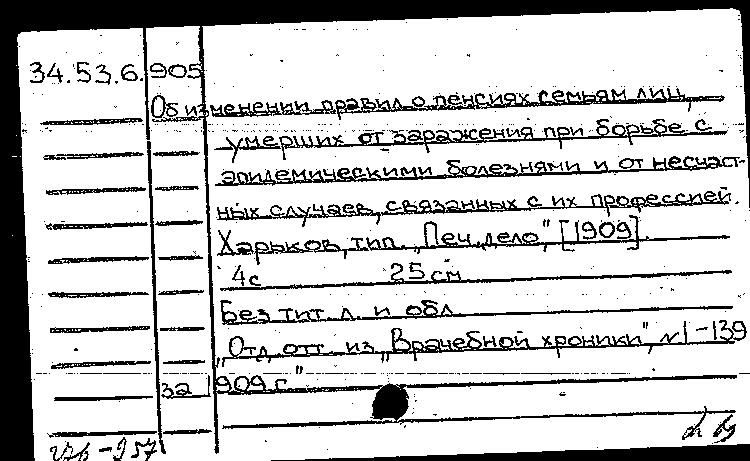 34.53.6.905
Об изменении правил о пенсиях семьям лиц,
умерших от заражения при борьбе с
эпидемическими болезнями и от несчаст-
ных случаев, связанных с их профессией.
Харьков, тип. "Печ. дело", [1909].
4с 25 см
Без тит. л. и обл
"Отд. отт. из "Врачебной хроники", №1-139
за 1909 г."